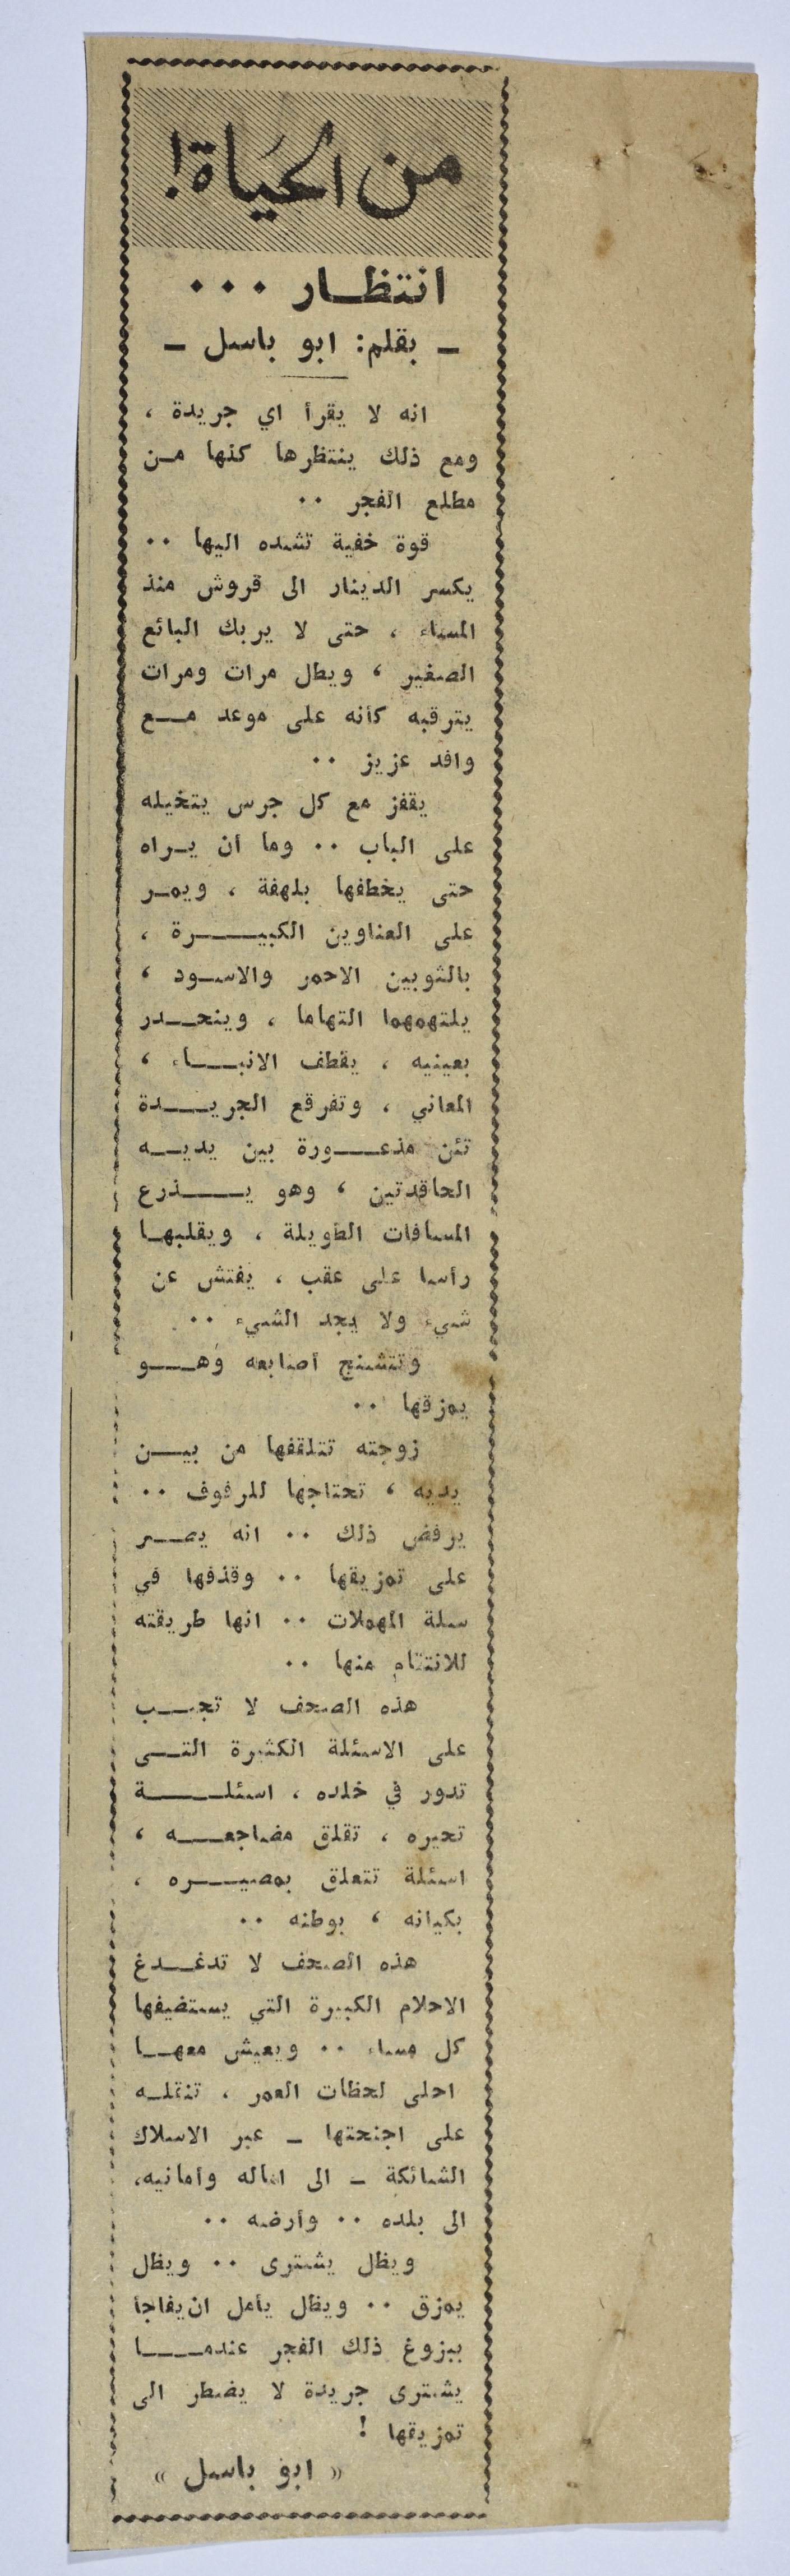 من الحياة!
انتظــار ...
ـ بقلم: ابو باسل ـ
انه لا يقرأ اي جريدة ،
ومع ذلك ينتظرها كلها مـن
مطلع الفجر ..
قوة خفية تشده اليها ..
يكسر الدينار الى قروش منذ
المساء ، حتى لا يربك البائع
الصغير ، ويطل مرات ومرات
يترقبه كأنه على موعد مــع
وافد عزيز ..
يقفز مع كل جرس يتخيله
على الباب .. وما ان يـراه
حتى يخطفها بلهفة ، ويمـر
على العناوين الكبيــــرة ،
بالثوبين الاحمر والاسـود ،
يلتهمهما التهاما ، وينحــدر
بعينيه ، يقطف الانبــــاء ،
المعاني ، وتفرقع الجريــــدة
تئن مذعــــورة بين يديــه
الحاقدتين ، وهو يــــــذرع
المسافات الطويلة ، ويقلبهـا
رأسا على عقب ، يفتش عن
شيء ولا يجد الشيء ..
وتتشنج أصابعه وهــــو
يمزقها ..
زوجته تتلقفها من بيــن
يديه ، تحتاجها للرفوف ..
يرفض ذلك .. انه يصــر
على تمزيقها .. وقذفها في
سلة المهملات .. انها طريقته
للانتقام منها ..
هذه الصحف لا تجــب
على الاسئلة الكثيرة التــى
تدور في خلده ، اسئلـــــة
تحيره ، تقلق مضاجعــــه ،
اسئلة تتعلق بمصيــــره ،
بكيانه ، بوطنه ..
هذه الصحف لا تدغــدغ
الاحلام الكبيرة التي يستضيفها
كل مساء .. ويعيش معهــا
احلى لحظات العمر ، تنقلـه
على اجنحتها ـ عبر الاسلاك
الشائكة ـ الى اماله وأمانيه،
الى بلده .. وأرضه ..
ويظل يشترى .. ويظل
يمزق .. ويظل يأمل ان يفاجأ
ببزوغ ذلك الفجر عندمــــا
يشترى جريدة لا يضطر الى
تمزيقها !
« ابو باسل »